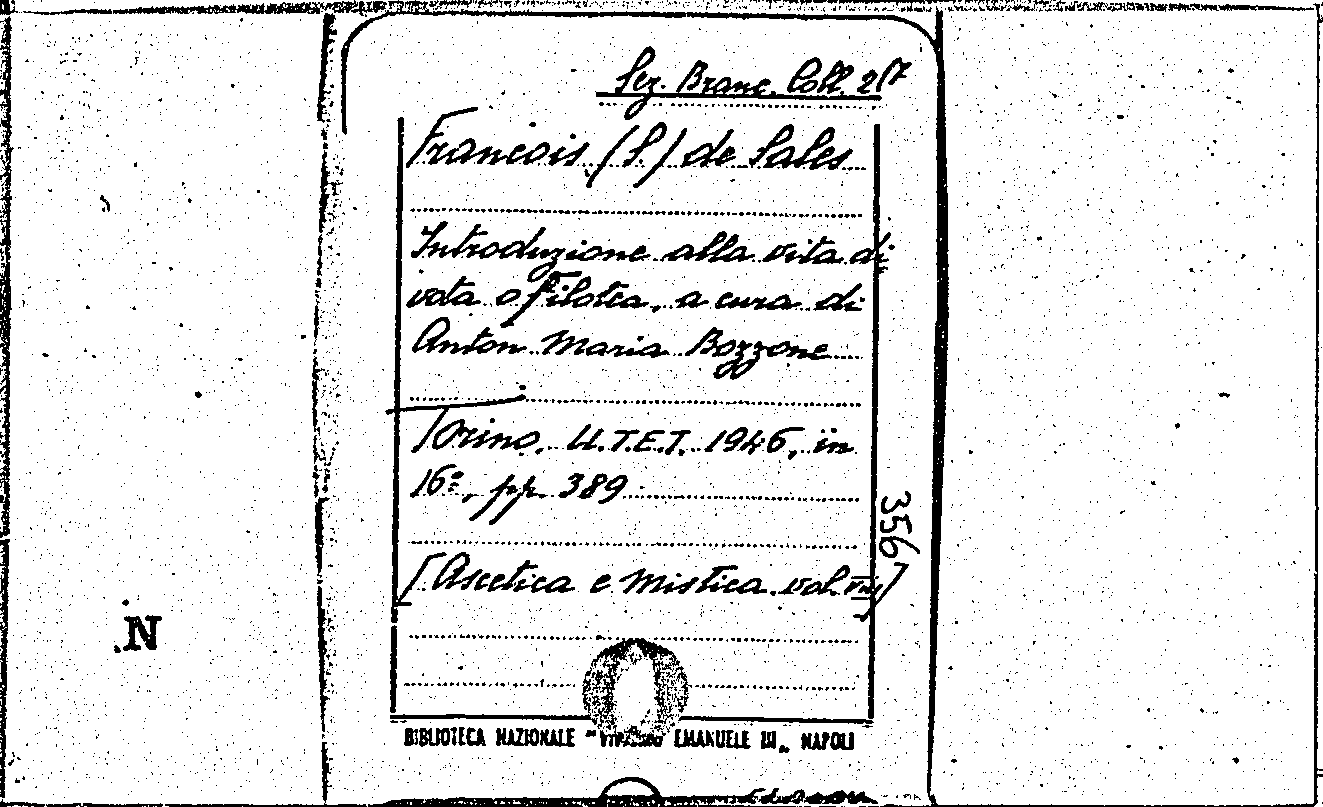 Sez. Branc. Coll. 217
Francois (S) de Sales
Introduzione alla vita di
vota o Filotea, a cura di
Anton Maria Bozzone
Torino. U.T.E.T. 1946, in
16º, pp. 389
356
[Ascetica e Mistica. vol. VIII]
N
BIBLIOTECA NAZIONALE "VITTORIO EMANUELE III" NAPOLI